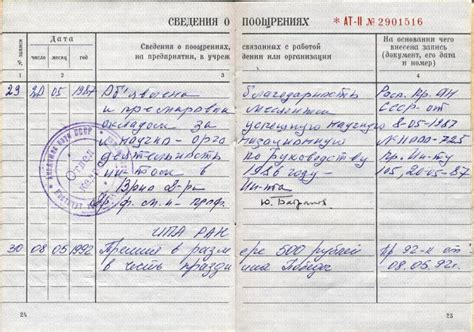 СВЕДЕНИЯ О ПООЩРЕНИЯХ
* АТ-II № 2901516
№ записи
Дата
число
месяц
год
Сведения о поощрениях, связанных с работой
на предприятии, в учреждении или организации
На основании чего
внесена запись
(документ, его дата
и номер)
1 2 3 4
29 20 05 1987 Объявлена благодарность Расп. Пр. АН
и премирован месячным СССР от
окладом за успешную научную 8-05-1987
и научно-организационную № 11000-725
деятельность по руководству Пр. Ин-ту
ин-том в 1986 году - 105, 20.05.87
Врио д-ра Ин-та
д.ф.-м.н. проф.
ИПА РАН
30 08 05 1992 Премия в размере 500 рублей Пр 92-к от
в честь праздника Победы 08.05.92г.
24
25